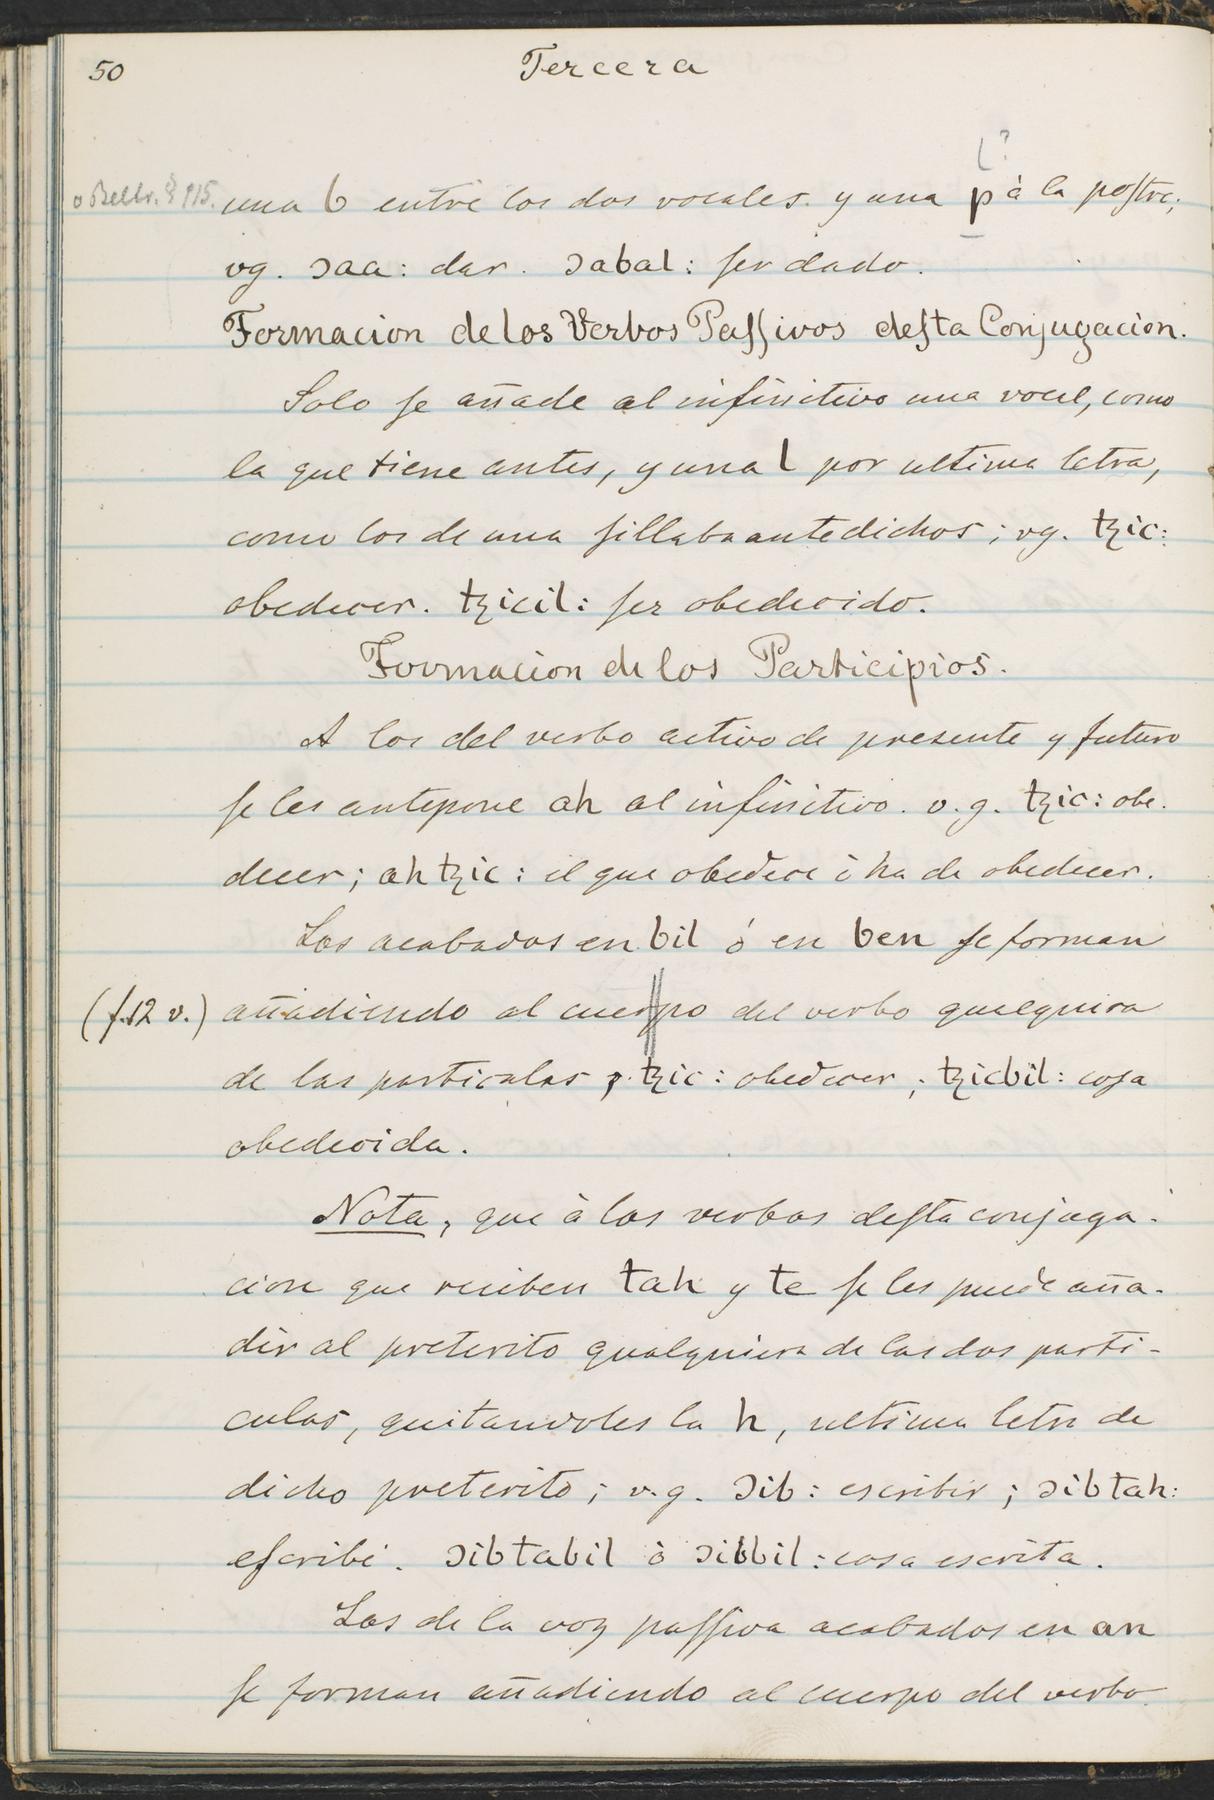 50 Tercera
l?
v Beltr. § 115. una b entre los dos vocales. y una p à la poſtre;
vg. ɔaa: dar. ɔabal: ſer dado.
Formacion de los Verbos Paſſivos deſta Conjugacion.
Solo ſe añade al infinitivo una vocal, como
la que tiene antes, y una l por ultima letra,
como los de una ſillaba antedichos; vg. tzic:
obedecer. tzicil: ſer obedecido.
Formacion de los Participios.
A los del verbo activo de presente y futuro
ſe les antepone ah al infinitivo. v.g. tzic: obe-
decer; ah tzic: el que obedece ò ha de obedecer.
Los acabados en bil ó en ben ſe forman
(f.12 v.) añadiendo al cuerpo del verbo qualquiera
de las particulas, tzic: obedecer; tzicbil: coſa
obedecida.
Nota, que à los verbos deſta conjuga-
cion que reciben tah y te ſe les puede aña-
dir al preterito qualquiera de las dos parti-
culas, quitandoles la h, ultima letra de
dicho preterito; v.g. ɔib: escribir; ɔibtah:
eſcribi. ɔibtabil ò ɔibbil: cosa escrita.
Los de la voz paſſiva acabados en an
ſe forman añadiendo al cuerpo del verbo